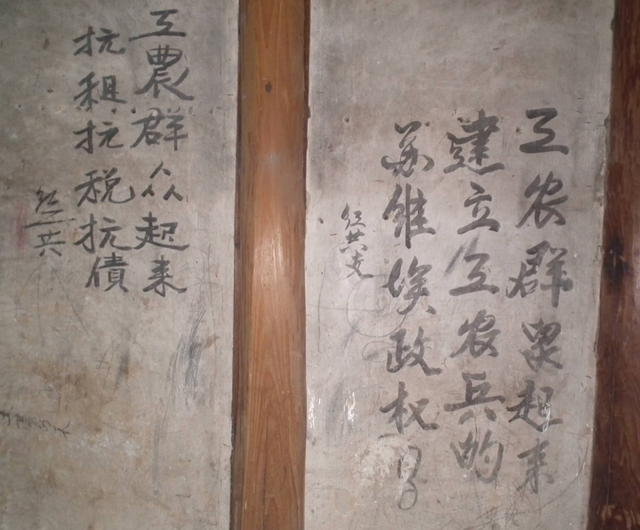 工农群眾起来
建立工农兵的
苏维埃政权!
红共支
工農群众起来
抗租抗税抗債
红共